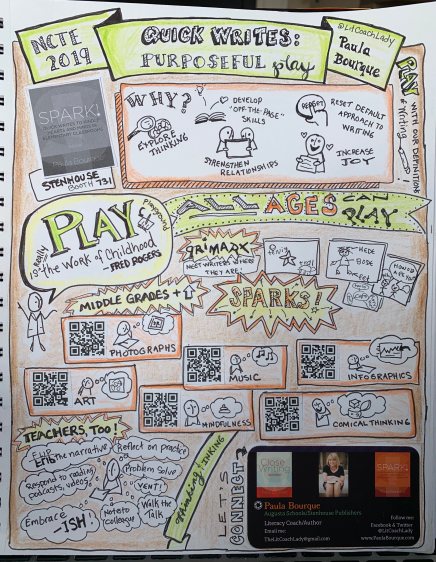 NCTE
2019
QUICK WRITES:
PURPOSEFUL play
@LitCoachLady
Paula
Bourque
PLAY
WITH OUR DEFINITION
of Writing
SPARK!
Paula Bourque
STENHOUSE
BOOTH 731
WHY?
EXPLORE
THINKING
DEVELOP
"OFF-THE-PAGE"
SKILLS
STRENGTHEN
RELATIONSHIPS
RESET DEFAULT
APPROACH TO
WRITING
INCREASE
JOY
PLAY
is Really
the Work of Childhood
- FRED ROGERS
ALL AGES CAN
PLAY
PRIMARY
MEET WRITERS WHERE
THEY ARE!
MIDDLE GRADES +
SPARKS!
PHOTOGRAPHS
MUSIC
INFOGRAPHICS
ART
MINDFULNESS
COMICAL THINKING
TEACHERS, TOO!
FLIP the narrative
Reflect on practice
Respond to reading
podcasts, videos
Problem solve
VENT!
Embrace
-ISH!
Note to
colleague
Walk the
Talk
THINKING
LET'S
CONNECT
Close
Writing
SPARK!
Paula Bourque
Augusta Schools/Stenhouse Publishers
Literacy Coach/Author
Email me:
TheLitCoachLady@gmail.com
Follow me:
Facebook & Twitter
@LitCoachLady
www.PaulaBourque.com